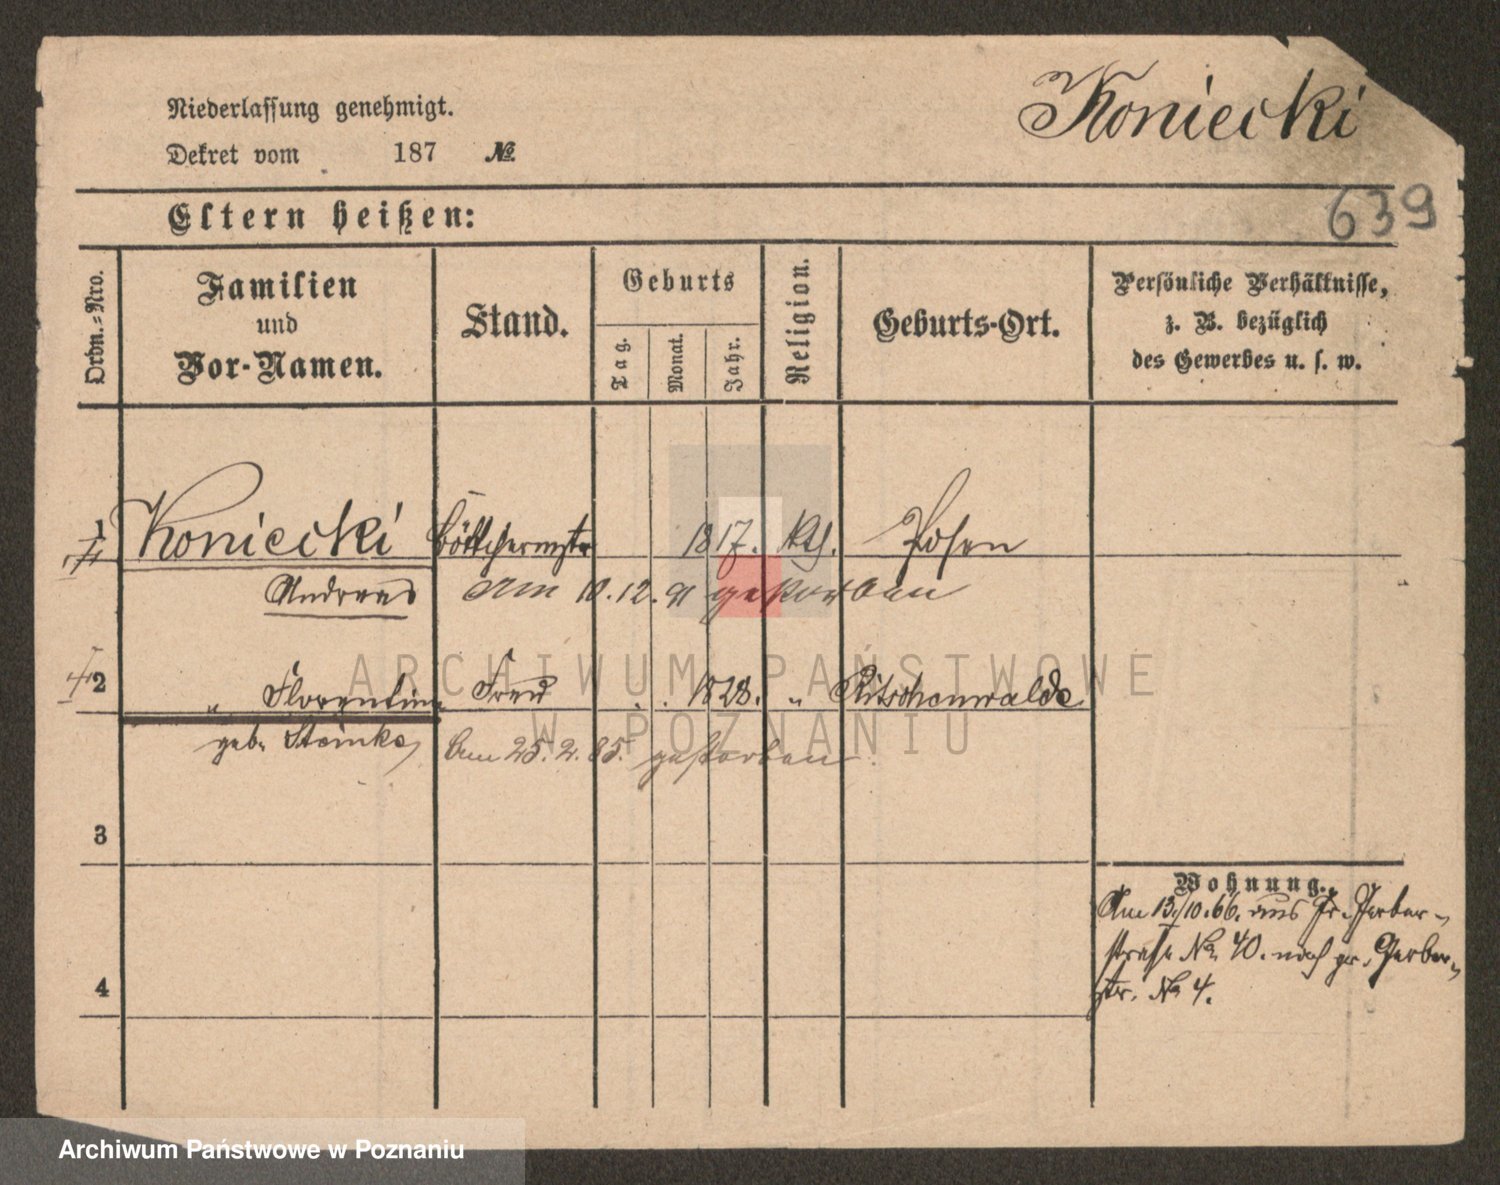 Niederlassung genehmigt.
Dekret vom 187 №
Koniecki
639
Eltern heißen:
Ordn.-Nro.
Familien
und
Vor-Namen.
Stand.
Geburts
Tag.
Monat.
Jahr.
Religion.
Geburts-Ort.
Persönliche Verhältnisse,
z. B. bezüglich
des Gewerbes u. s. w.
1 Koniecki Böttchermstr 1817. Kth. Posen
Andreas am 10.12.91 gestorben
2 " Florentine Frau . . 1828. " Ritschenwalde
geb. Steinke, am 25.2.85. gestorben.
3
4
Wohnung.
Am 13/10.66. aus Gr. Gerber-
straße No 40. nach gr. Gerber-
str. No 4.
ARCHIWUM PAŃSTWOWE
W POZNANIU
Archiwum Państwowe w Poznaniu